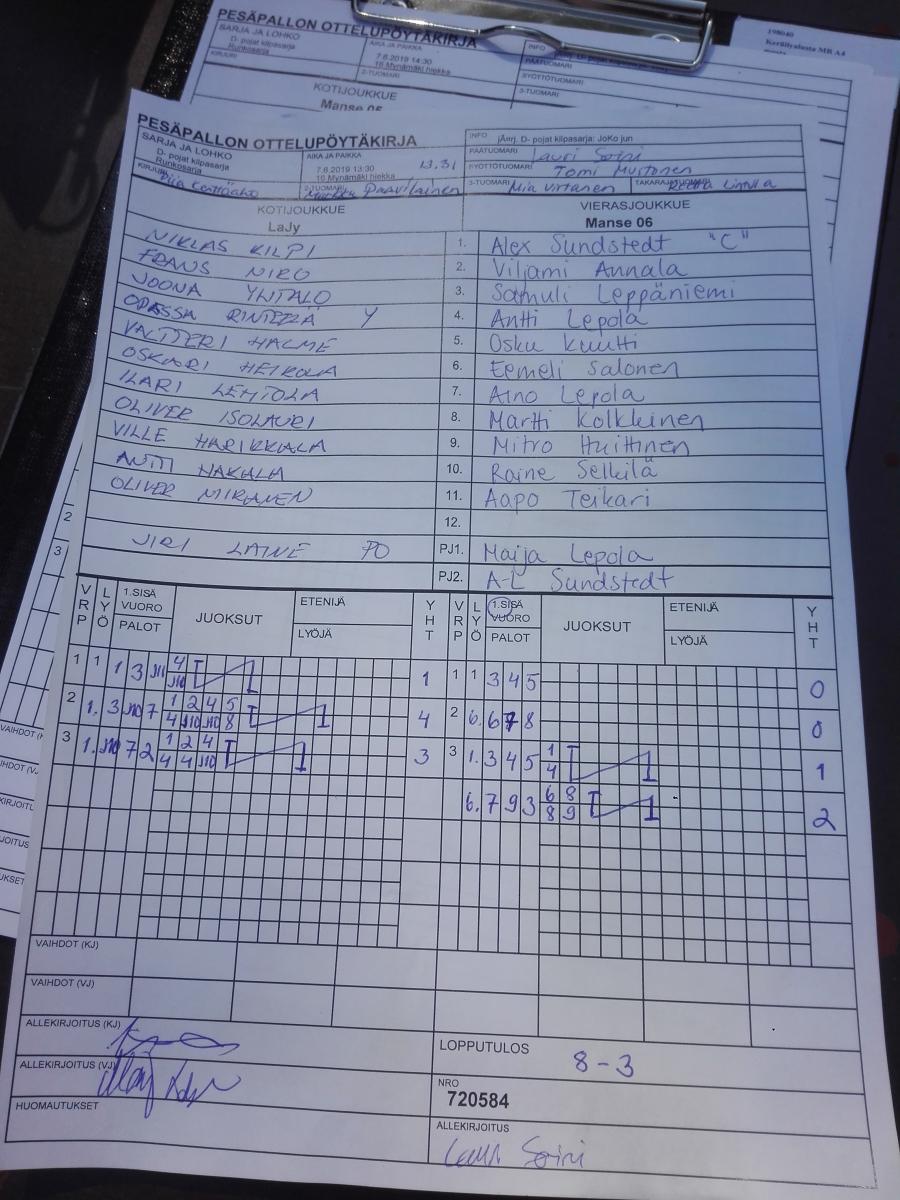 PESÄPALLON OTTELUPÖYTÄKIRJA
SARJA JA LOHKO
D- pojat kilpasarja
Runkosarja
AIKA JA PAIKKA
7.6.2019 14:30
16 Mynämäki hiekka
INFO
PÄÄTUOMARI
SYÖTTÖTUOMARI
KIRJURI
2-TUOMARI
3-TUOMARI
KOTIJOUKKUE
Manse 06
PESÄPALLON OTTELUPÖYTÄKIRJA
SARJA JA LOHKO
D- pojat kilpasarja
Runkosarja
AIKA JA PAIKKA
7.6.2019 13:30
16 Mynämäki hiekka
13.31
INFO
jÄorj. D- pojat kilpasarja: JoKo jun
PÄÄTUOMARI Lauri Soini
SYÖTTÖTUOMARI Tomi Mustonen
KIRJURI
2-TUOMARI Markku Paavilainen
3-TUOMARI Mia Virtanen
TAKARAJATUOMARI Reetta
KOTIJOUKKUE
LaJy
VIERASJOUKKUE
Manse 06
NIKLAS KILPI 1. Alex Sundstedt "C"
FRANS NIRO 2. Viljami Annala
JOONA YHTALO 3. Samuli Leppäniemi
RINTEELÄ Y 4. Antti Lepola
VALTTERI HALME 5. Osku Kuutti
OSKARI HEIKOLA 6. Eemeli Salonen
ILARI LEHTOLA 7. Aino Lepola
OLIVER ISOLAURI 8. Martti Kolkkinen
VILLE HARIKKALA 9. Mitro Huittinen
ANTTI HAKALA 10. Raine Selkilä
OLIVER MIKANEN 11. Aapo Teikari
12.
JIRI LAINE PJ1. Maija Lepola
PJ2. A-L Sundstedt
VRP LYÖ 1.SISÄ VUORO PALOT JUOKSUT ETENIJÄ LYÖJÄ YHT VRP LYÖ 1.SISÄ VUORO PALOT JUOKSUT ETENIJÄ LYÖJÄ YHT
1 1 1 3 10 4 I 1 1 1 1 3 4 5 0
10
2 1. 3 10 7 1 2 4 5 I 1 4 2 6. 6 7 8 0
4 10 10 8
3 1. 10 7 2 1 2 4 I 1 3 3 1. 3 4 5 1 I 1 1
4 4 10 4
6. 7 9 3 6 8 I 1 2
8 9
VAIHDOT (KJ)
VAIHDOT (VJ)
ALLEKIRJOITUS (KJ)
LOPPUTULOS 8-3
ALLEKIRJOITUS (VJ)
NRO
720584
HUOMAUTUKSET
ALLEKIRJOITUS
Lauri Soini